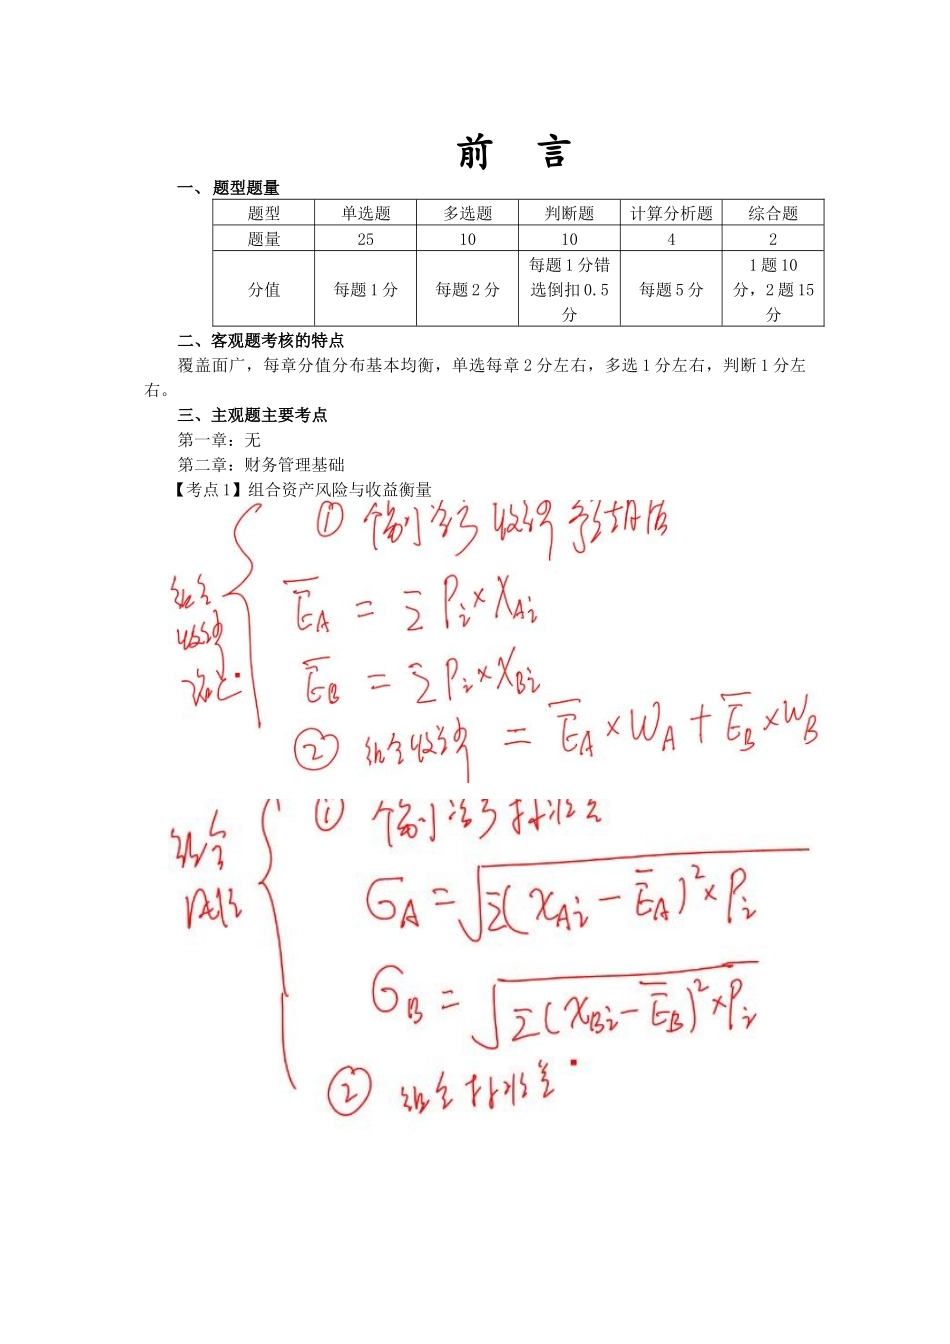 前 言
一、题型题量
题型 单选题 多选题 判断题 计算分析题 综合题
题量 25 10 10 4 2
分值 每题 1 分 每题 2 分 每题 1 分错选倒扣 0.5 分 每题 5 分 1 题 10 分，2 题 15 分
二、客观题考核的特点
覆盖面广，每章分值分布基本均衡，单选每章 2 分左右，多选 1 分左右，判断 1 分左
右。
三、主观题主要考点
第一章：无
第二章：财务管理基础
【考点 1】组合资产风险与收益衡量
① 个别资产收益率
组合
收益率
E̅A = Σ Pi × XAi
E̅B = Σ Pi × XBi
② 组合收益率 = E̅A × WA + E̅B × WB
① 个别资产标准差
组合
风险
σA = √Σ(XAi − E̅A)² × Pi
σB = √Σ(XBi − E̅B)² × Pi
② 组合标准差